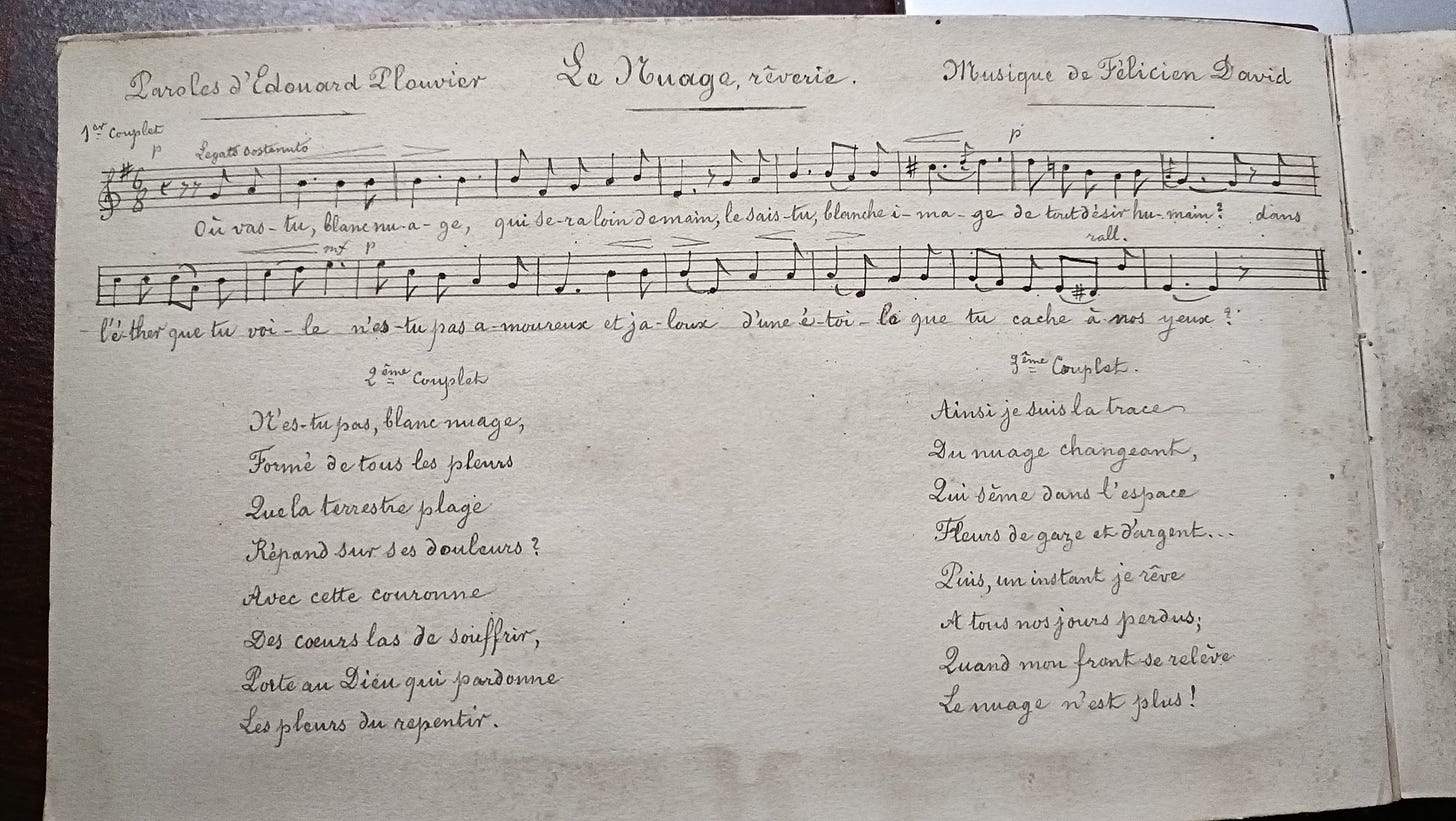 Paroles d'Edouard Plouvier
Le Nuage, rêverie.
Musique de Félicien David
1er Couplet
p Legato sostenuto
p
Où vas-tu, blanc nu-a-ge, qui se-ra loin demain, le sais-tu, blanche i-ma-ge de tout désir hu-main? dans
mf p
rall.
l'é-ther que tu voi-le n'es-tu pas a-moureux et ja-loux d'une é-toi-le que tu cache à nos yeux?
2ème Couplet
N'es-tu pas, blanc nuage,
Formé de tous les pleurs
Que la terrestre plage
Répand sur ses douleurs?
Avec cette couronne
Des coeurs las de souffrir,
Porte au Dieu qui pardonne
Les pleurs du repentir.
3ème Couplet.
Ainsi je suis la trace
Du nuage changeant,
Qui sème dans l'espace
Fleurs de gaze et d'argent...
Puis, un instant je rêve
A tous nos jours perdus;
Quand mon front se relève
Le nuage n'est plus!